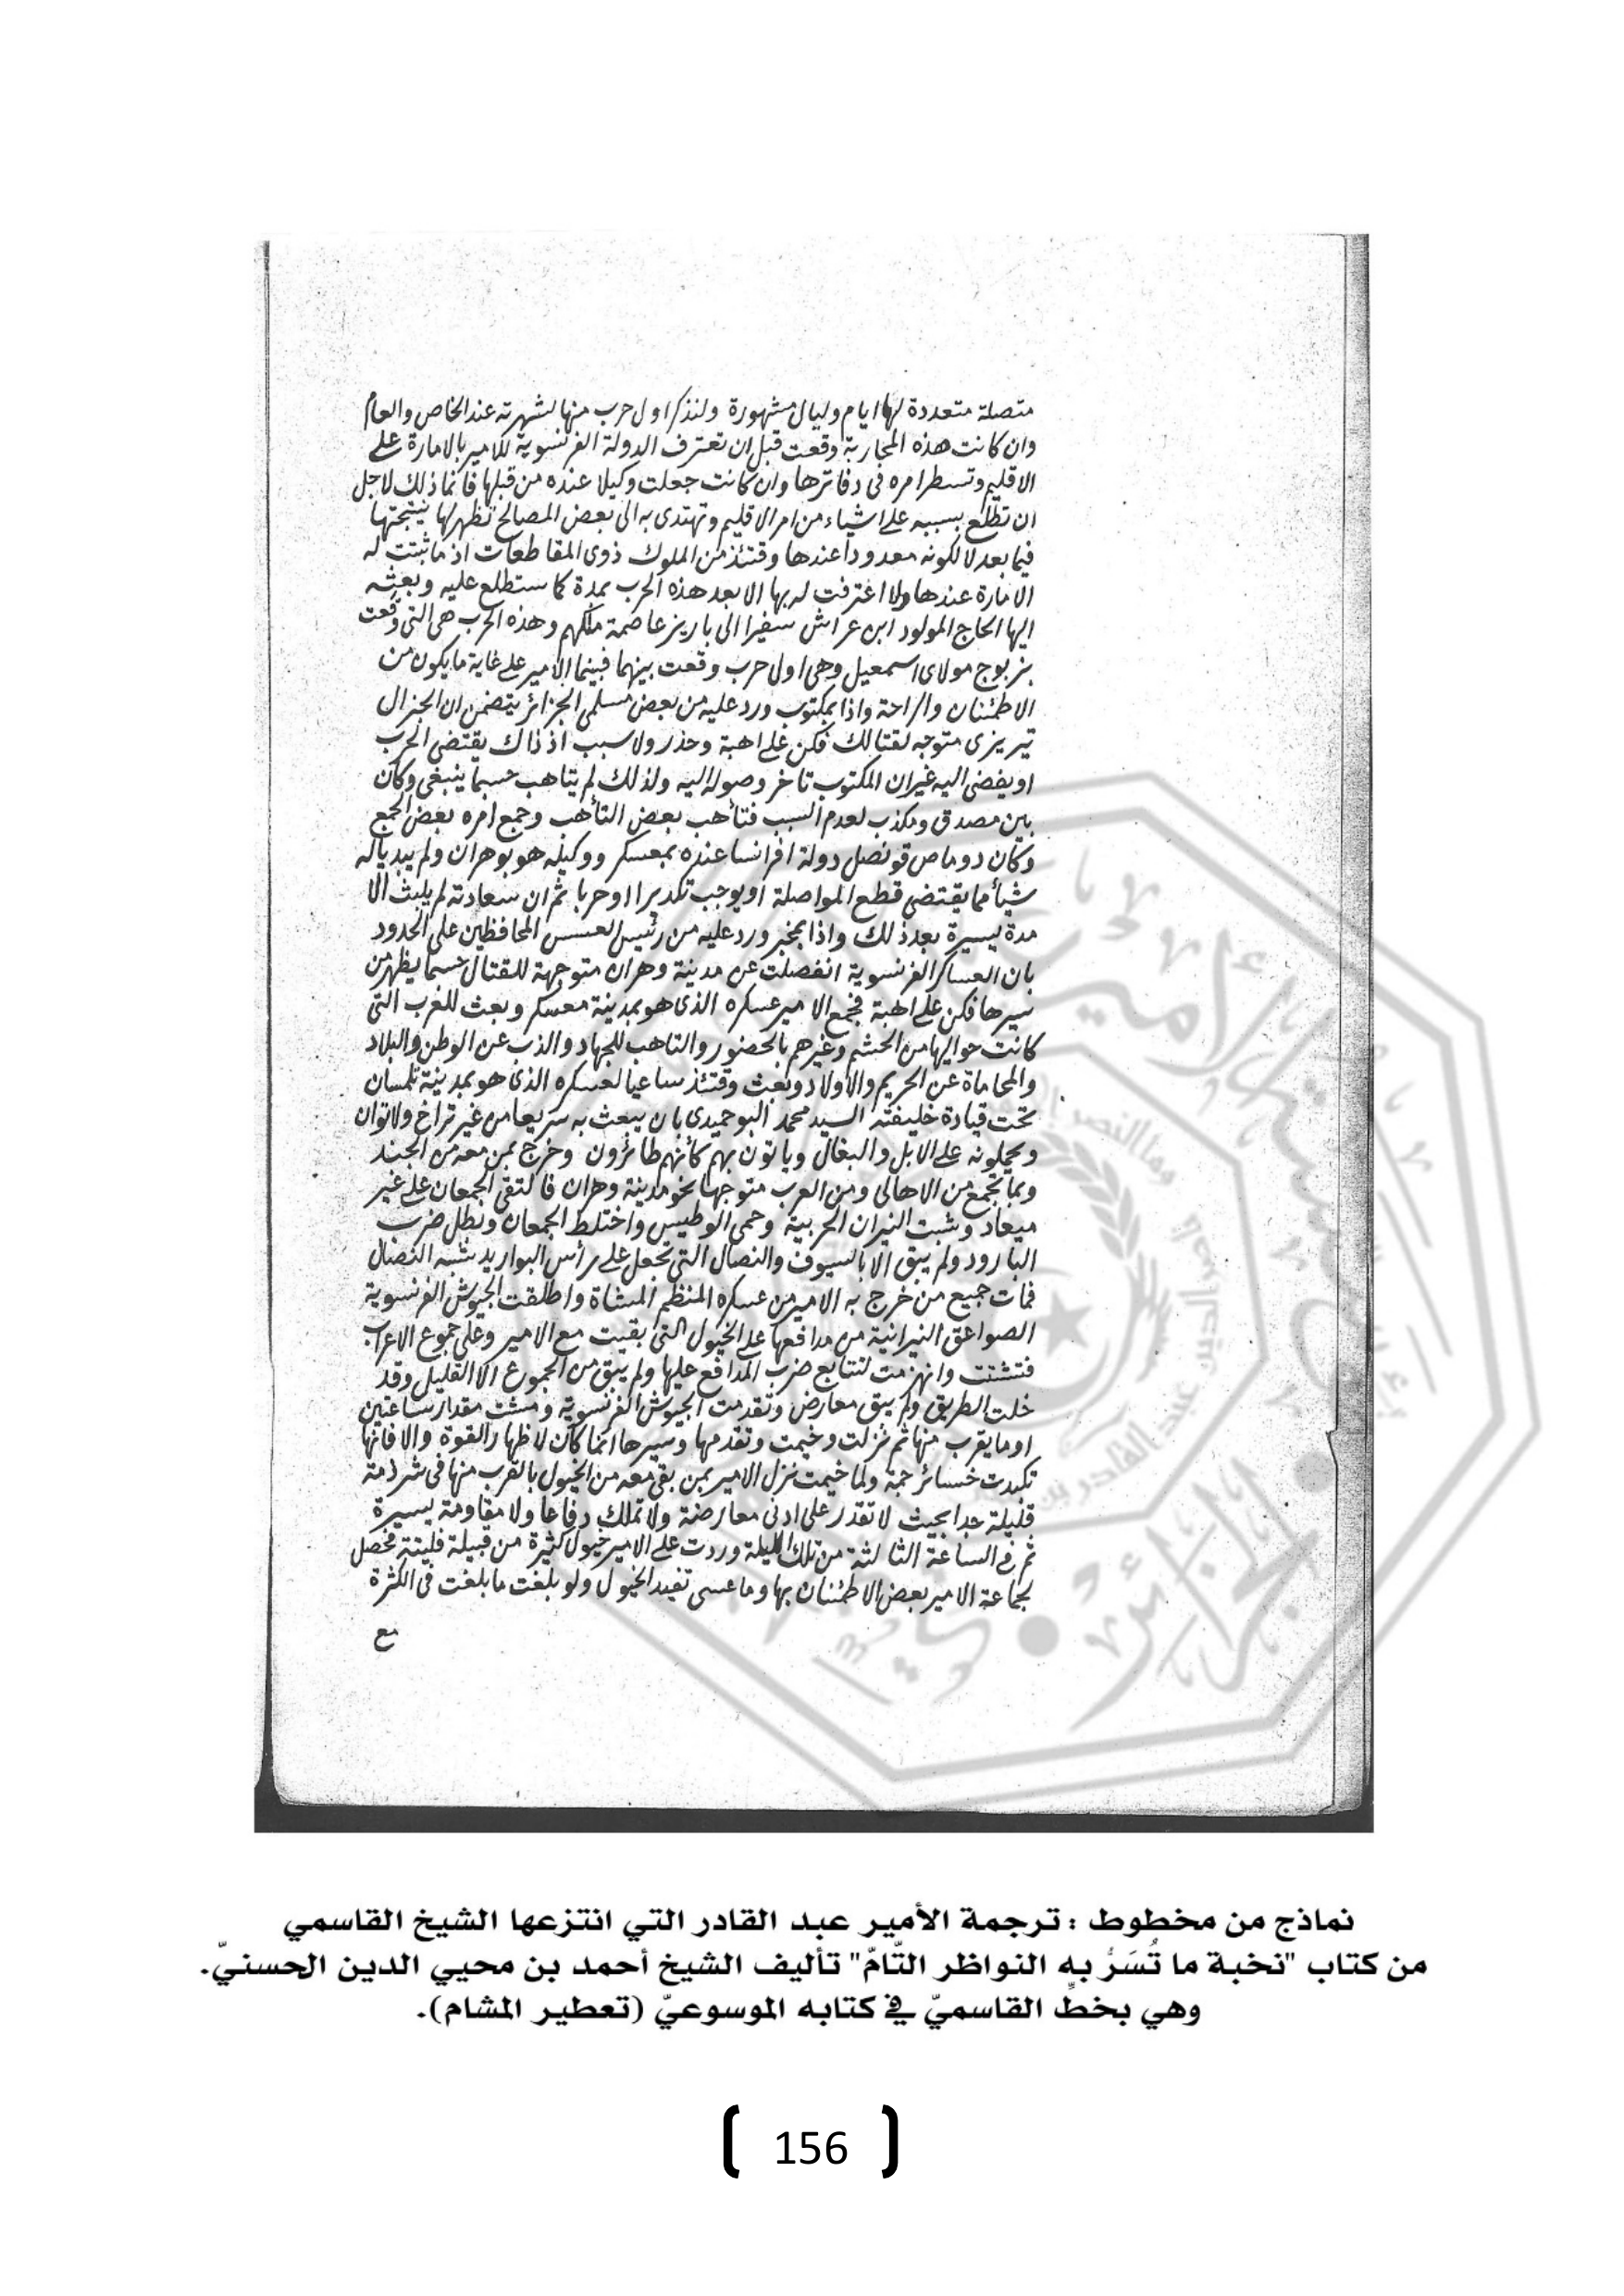 متصلة متعددة لها ايام وليال مشهورة ولنذكر اول حرب منها لشهرته عند الخاص والعام
وان كانت هذه المحاربة وقعت قبل ان تعترف الدولة الفرنسوية للامير بالامارة على
الاقليم وتسطر امره فى دفاترها وان كانت جعلت وكيلا عنده من قبلها فانما ذلك لاجل
ان تطلع بسببه على اشياء من امر الاقليم وتهتدى به الى بعض المصالح تظهر لها نتيجتها
فيما بعد لا لكونه معدودا عندها وقتئذ من الملوك ذوى المقاطعات اذ ما ثبتت له
الامارة عندها ولا اعترفت له بها الا بعد هذه الحرب بمدة كما ستطلع عليه وبعثه
اليها الحاج المولود ابن عراش سفيرا الى باريز عاصمة ملكهم وهذه الحرب هى التى وقعت
بزبوج مولاى اسمعيل وهى اول حرب وقعت بينهما فبينما الامير على غاية ما يكون من
الاطمئنان والراحة واذا بمكتوب ورد عليه من بعض مسلمى الجزائر يتضمن ان الجنرال
تيريزى متوجه لقتالك فكن على اهبة وحذر ولا سبب اذ ذاك يقتضى الحرب
او يفضى اليه غير ان المكتوب تاخر وصوله اليه ولذلك لم يتاهب حسبما ينبغى وكان
بين مصدق ومكذب لعدم السبب فتأهب بعض التأهب وجمع امره بعض الجمع
وكان دوماص قونصل دولة افرانسا عنده بمعسكر ووكيله هو بوهران ولم يبد ياله
شيأ مما يقتضى قطع المواصلة او يوجب تكديرا او حربا ثم ان سعادته لم يلبث الا
مدة يسيرة بعد ذلك واذا بمخبر ورد عليه من رئيس العسس المحافظين على الحدود
بان العساكر الفرنسوية انفصلت عن مدينة وهران متوجهة للقتال حسبما يظهر من
سيرها فكن على اهبة فجمع الامير عسكره الذى هو بمدينة معسكر وبعث للعرب التى
كانت حواليها من الحشم وغيرهم بالحضور والتاهب للجهاد والذب عن الوطن والبلاد
والمحاماة عن الحريم والاولاد وبعث وقتئذ ساعيا لعسكره الذى هو بمدينة تلمسان
تحت قيادة خليفته السيد محمد البوحميدى بان يبعث به سريعا من غير تراخ ولا توان
ويحملونه على الابل والبغال وياتون بهم كأنهم طائرون وخرج بمن معه من الجند
وبما تجمع من الاهالى ومن العرب متوجها نحو مدينة وهران فالتقى الجمعان على غير
ميعاد وشبت النيران الحربية وحمى الوطيس واختلط الجمعان وبطل ضرب
البارود ولم يبق الا بالسيوف والنصال التى تجعل على رأس البواريد شبه النصال
فمات جميع من خرج به الامير من عسكره المنظم المشاة واطلقت الجيوش الفرنسوية
الصواعق النيرانية من مدافعها على الخيول التى بقيت مع الامير وعلى جموع الاعراب
فتشتت وانهزمت لتتابع ضرب المدافع عليها ولم يبق من الجموع الا القليل وقد
خلت الطريق ولم يبق معارض وتقدمت الجيوش الفرنسوية ومشت مقدار ساعتين
او ما يقرب منها ثم نزلت وخيمت وتقدمها وسيرها انما كان لاظهار القوة والا فانها
تكبدت خسائر جمة ولما خيمت نزل الامير بمن بقى معه من الخيول بالقرب منها فى شرذمة
قليلة جدا بحيث لا تقدر على ادنى معارضة ولا تملك دفاعا ولا مقاومة يسيرة
ثم فى الساعة الثالثة من تلك الليلة وردت على الامير خيول كثيرة من قبيلة فليتة فحصل
لجماعة الامير بعض الاطمئنان بها وما عسى تفيد الخيول ولو بلغت ما بلغت فى الكثرة
مع
نماذج من مخطوط : ترجمة الأمير عبد القادر التي انتزعها الشيخ القاسمي
من كتاب "نخبة ما تُسَرُّ به النواظر التّامّ" تأليف الشيخ أحمد بن محيي الدين الحسنيّ.
وهي بخطِّ القاسميّ في كتابه الموسوعيّ (تعطير المشام).
156